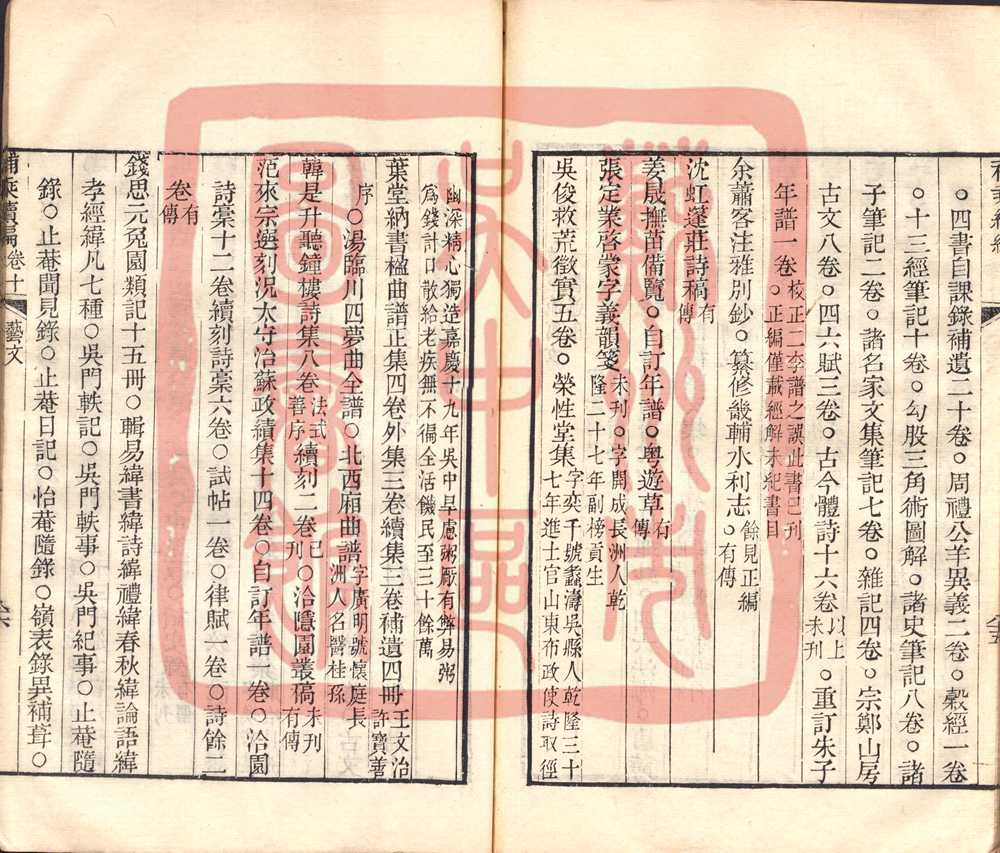 ○四書目課錄補遺二十卷○周禮公羊異義二卷○穀經一卷
○十三經筆記十卷○勾股三角術圖解○諸史筆記八卷○諸
子筆記二卷○諸名家文集筆記七卷○雜記四卷○宗鄭山房
古文八卷○四六賦三卷○古今體詩十六卷以上未刊○重訂朱子
年譜一卷○校正二李譜之誤此書已刊○正編僅載經解未紀書目
余蕭客注雅別鈔○纂修畿輔水利志○餘見正編○有傳
沈虹蓬莊詩稿有傳
姜晟撫苗備覽○自訂年譜○粵遊草有傳
張定業啓蒙字義韻箋未刊○字開成長洲人乾隆二十七年副榜貢生
吳俊救荒徵實五卷○榮性堂集字奕千號蠡濤吳縣人乾隆三十七年進士官山東布政使詩取徑
幽深精心獨造嘉慶十九年吳中旱慮粥厰有弊易粥爲錢計口散給老疾無不徧全活饑民至三十餘萬
葉堂納書楹曲譜正集四卷外集三卷續集三卷補遺四冊王文治許寶善
序○湯臨川四夢曲全譜○北西廂曲譜字廣明號懷庭長洲人名醫桂孫
韓是升聽鐘樓詩集八卷法式善序續刻二卷已刊○洽隱園叢稿未刊有傳
范來宗選刻況太守治蘇政績集十四卷○自訂年譜一卷○洽園
詩稾十二卷續刻詩稾六卷○試帖一卷○律賦一卷○詩餘二
卷有傳
錢思元兔園類記十五冊○輯易緯書緯詩緯禮緯春秋緯論語緯
孝經緯凡七種○吳門軼記○吳門軼事○吳門紀事○止菴隨
錄○止菴聞見錄○止菴日記○怡菴隨錄○嶺表錄異補葺○
卷十 藝文